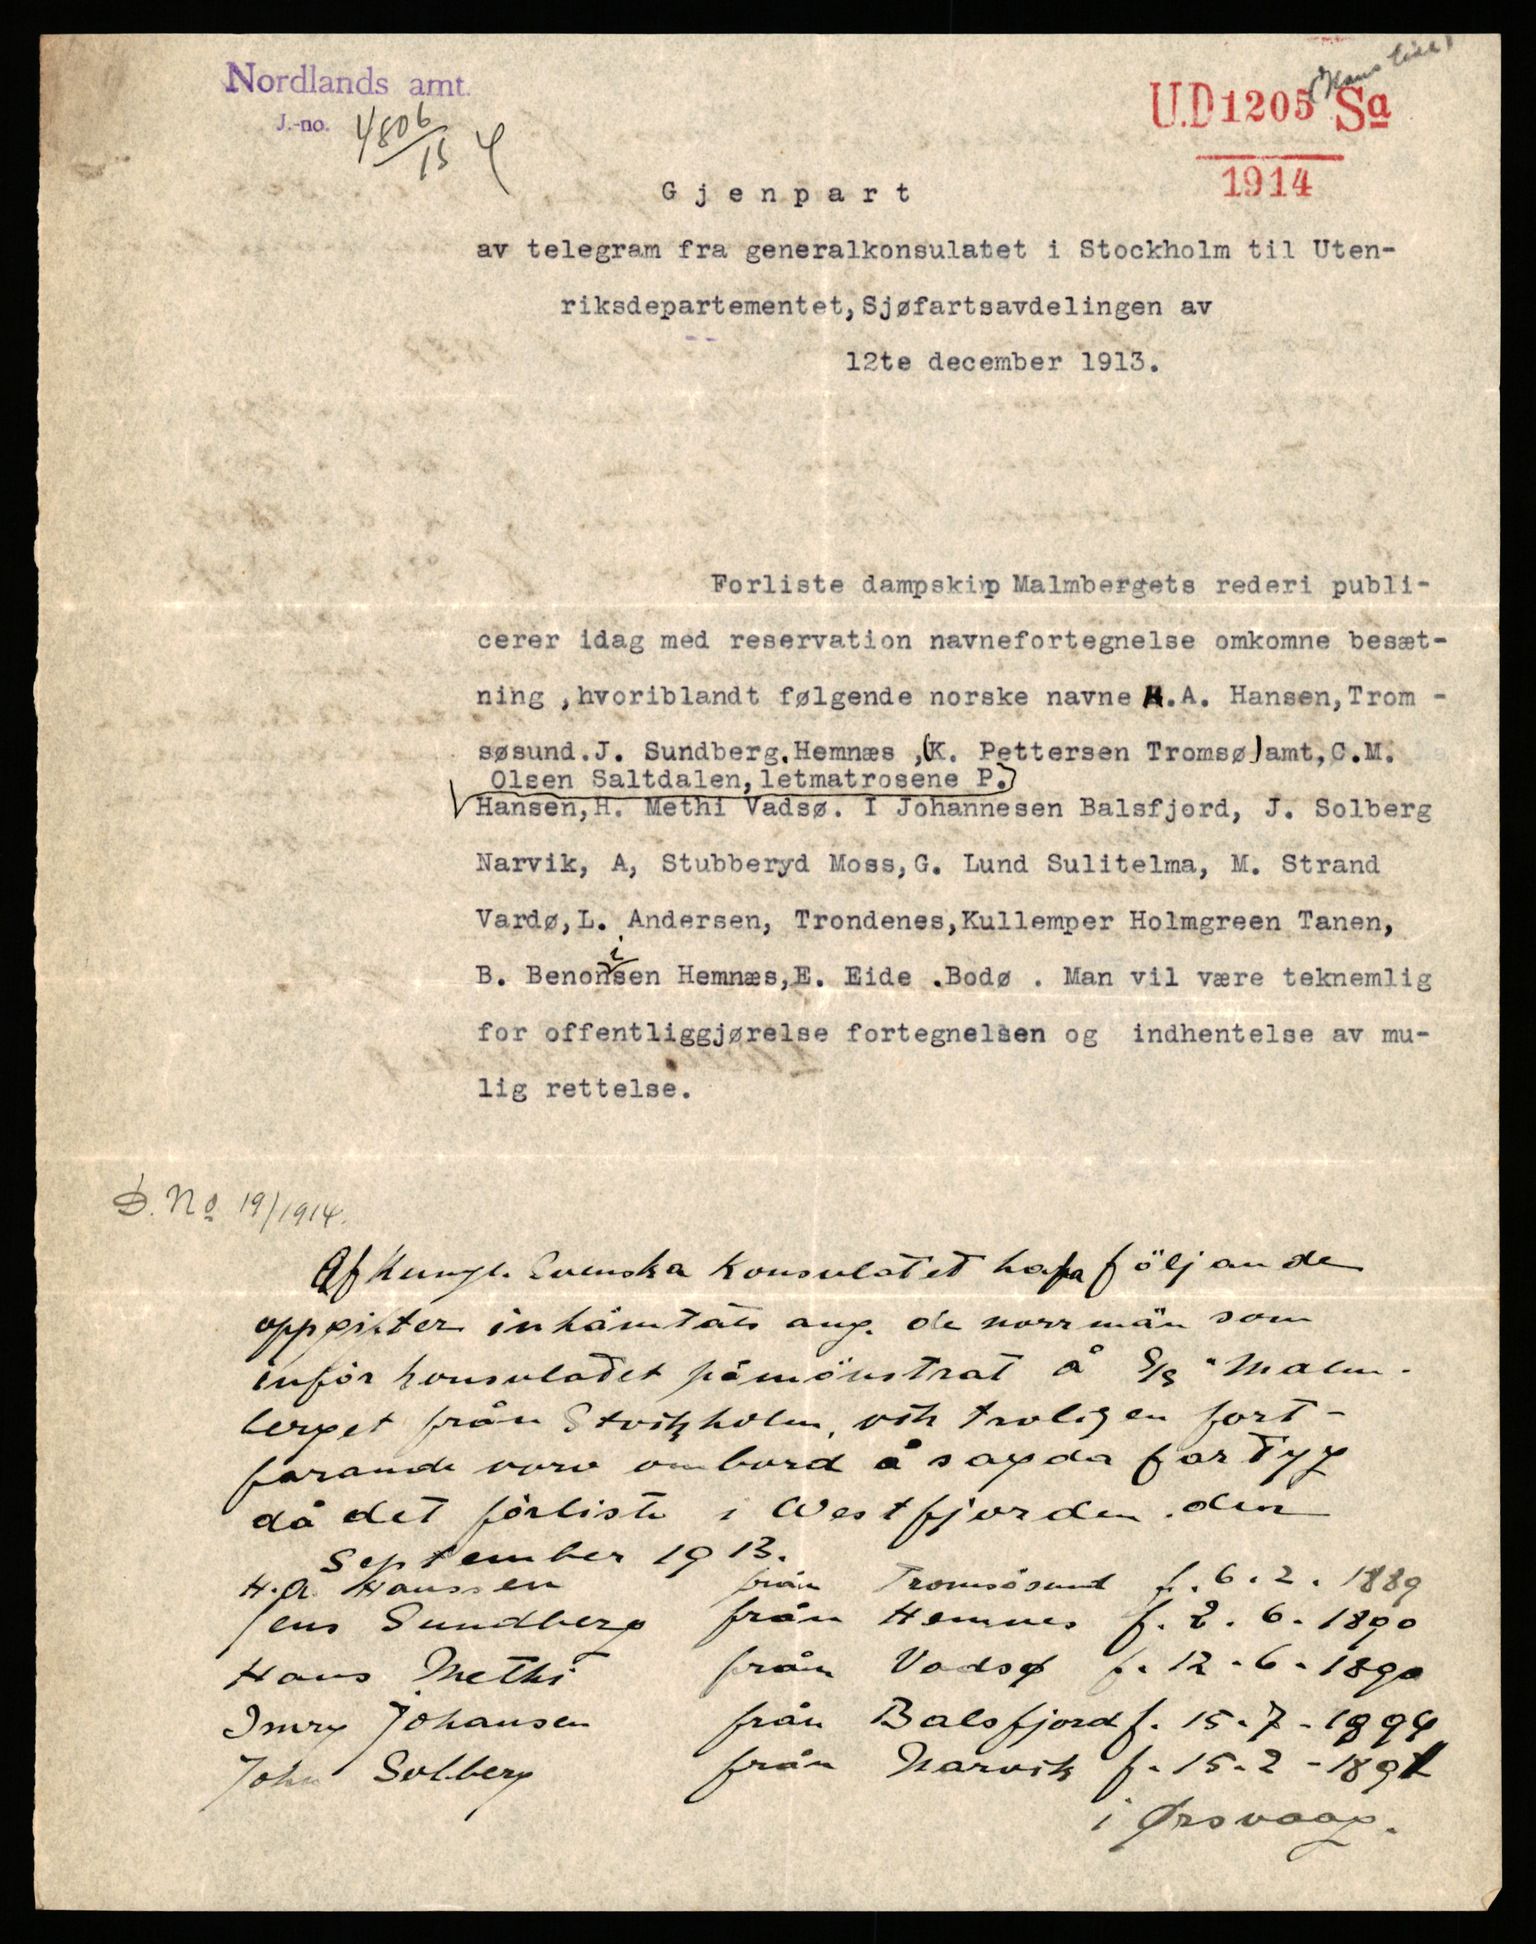 Nordlands amt.
J.-no. 4806/13
(Hans Eide)
U.D 1205 Sa
1914
Gjenpart
av telegram fra generalkonsulatet i Stockholm til Uten-
riksdepartementet, Sjøfartsavdelingen av
12te december 1913.
Forliste dampskip Malmbergets rederi publi-
cerer idag med reservation navnefortegnelse omkomne besæt-
ning ,hvoriblandt følgende norske navne H.A. Hansen,Trom -
søsund.J. Sundberg.Hemnæs ,(K. Pettersen Tromsø)amt,C.M.
Olsen Saltdalen,letmatrosene P.)
Hansen,H. Methi Vadsø. I Johannesen Balsfjord, J. Solberg
Narvik, A, Stubberyd Moss,G. Lund Sulitelma, M. Strand
Vardø,L. Andersen, Trondenes,Kullemper Holmgreen Tanen,
i
B. Benonsen Hemnæs,E. Eide .Bodø . Man vil være teknemlig
for offentliggjørelse fortegnelsen og indhentelse av mu-
lig rettelse.
D. No 19/1914.
Af Kungl. Svenska Konsulatet hafva följande
oppgifter inhämtats ang. de norrmän som
inför konsulatet påmönstrat å S/S "Malm-
berget från Stockholm, och troligen fort-
farande voro ombord å sagda fartyg
då det förliste i Westfjorden den
September 1913.
H.A. Hanssen från Tromsösund f. 6.2. 1889
Jens Sundberg från Hemnes f. 2. 6. 1890
Hans Methi från Vadsø f. 12-6-1890
Imry Johansen från Balsfjord f. 15-7-1894
John Solberg från Narvik f. 15-2-1891
i Ørsvaag.